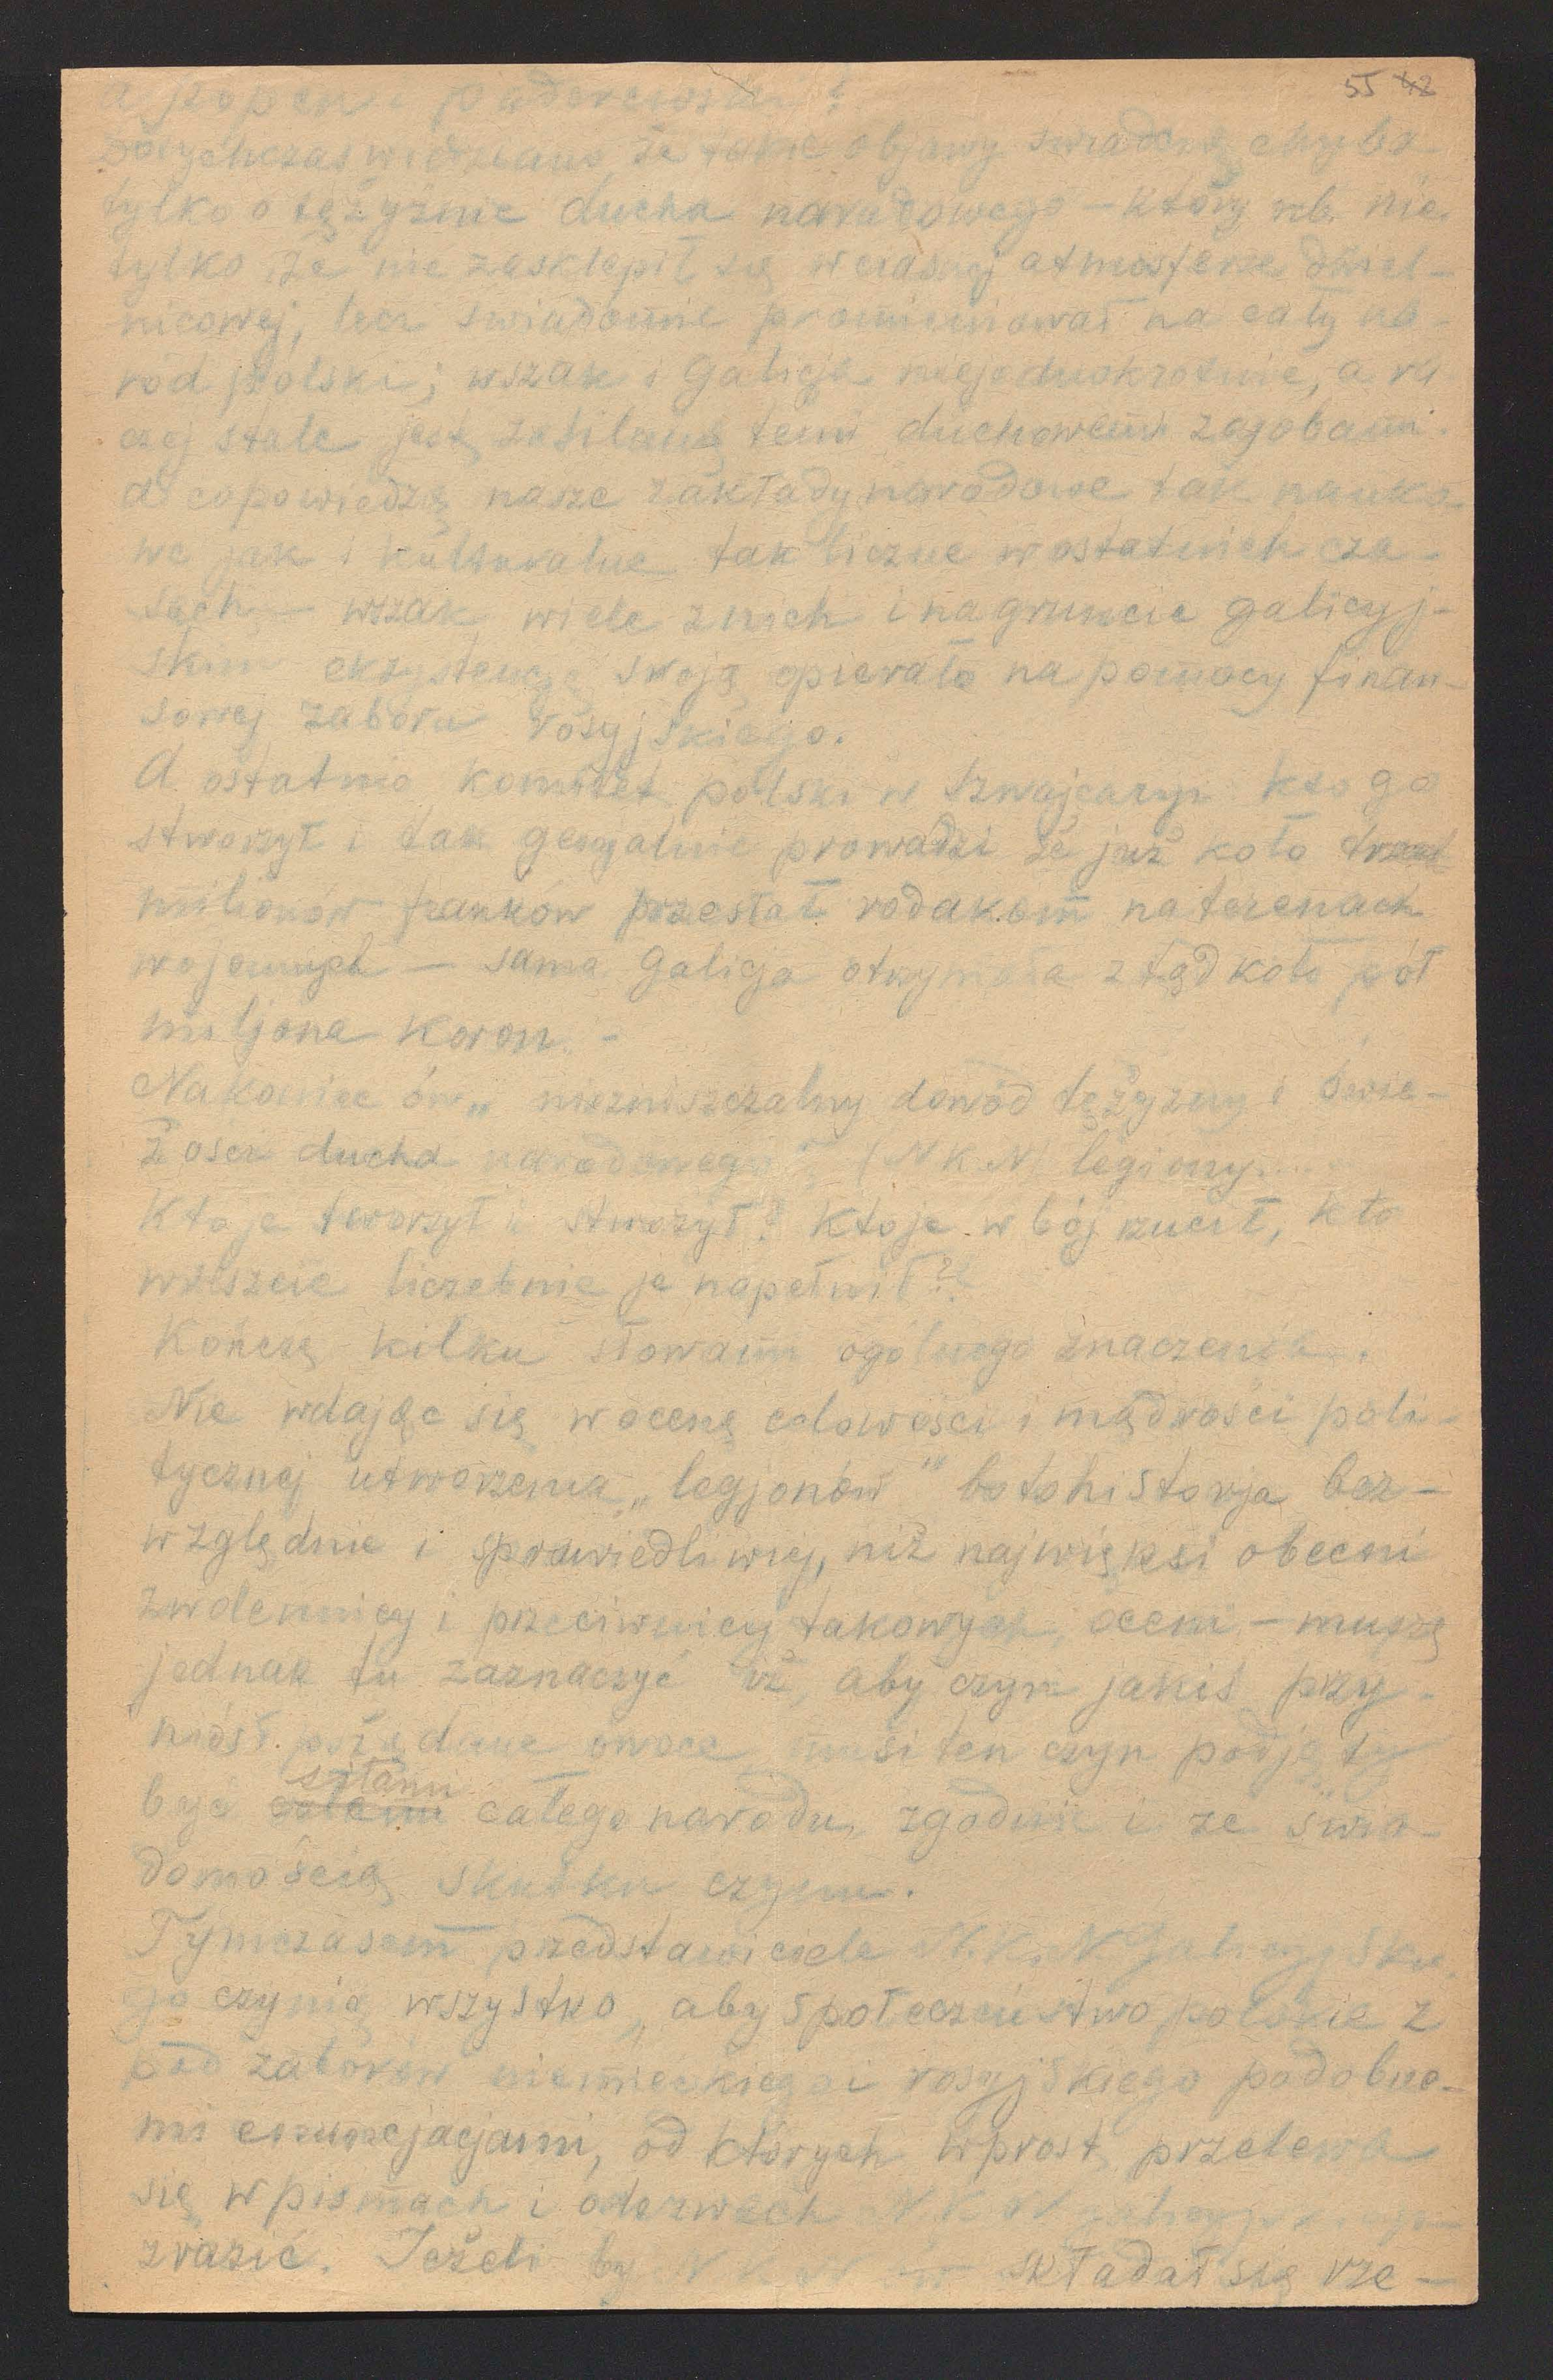 55 42
a Szopen i Paderewski?
Dotychczas wiedziano że takie objawy świadczą chyba
tylko o tężyznie ducha narodowego — który nb. nie
tylko że nie zasklepił się w ciasnej atmosferze dziel-
nicowej, lecz świadomie promieniował na cały na-
ród polski; wszak i Galicja niejednokrotnie, a ra
czej stale jest zasilaną temi duchowemi zasobami.
A co powiedzą nasze zakłady narodowe tak nauko
we jak i kulturalne tak liczne w ostatnich cza-
sach — wszak wiele z nich i na gruncie galicyj-
skim egzystencję swoją opierało na pomocy finan-
sowej zaboru rosyjskiego.
A ostatnio komitet polski w Szwajcaryi kto go
stworzył i tak genjalnie prowadzi że już koło
milionów franków przesłał rodakom na terenach
wojennych — sama Galicja otrzymała ztąd koło pół
miljona koron. -
Nakoniec ów „niezniszczalny dowód tężyzny i świe-
żości ducha narodowego" (N K N) legiony....
Kto je tworzył i stworzył? Kto je w bój rzucił, kto
wreszcie liczebnie je napełnił??
Kończę kilku słowami ogólnego znaczenia.
Nie wdając się w ocenę celowości i mądrości poli-
tycznej utworzenia „legjonów" bo to historja bez-
względnie i sprawiedliwiej, niż najwięksi obecni
zwolennicy i przeciwnicy takowych, oceni — muszę
jednak tu zaznaczyć iż, aby czyn jakiś przy-
niósł pożądane owoce musi ten czyn podjęty
siłami
być całego narodu, zgodnie i ze świa-
domością skutku czynu.
Tymczasem przedstawiciele N.K.N Galicyjskie
go czynią wszystko, aby społeczeństwo polskie z
pod zaborów niemieckiego i rosyjskiego podobne-
mi enuncjacjami, od których wprost przelewa
się w pismach i odezwach N K N galicyjskiego
zrazić. Jeżeli by N K N ów składał się rze-